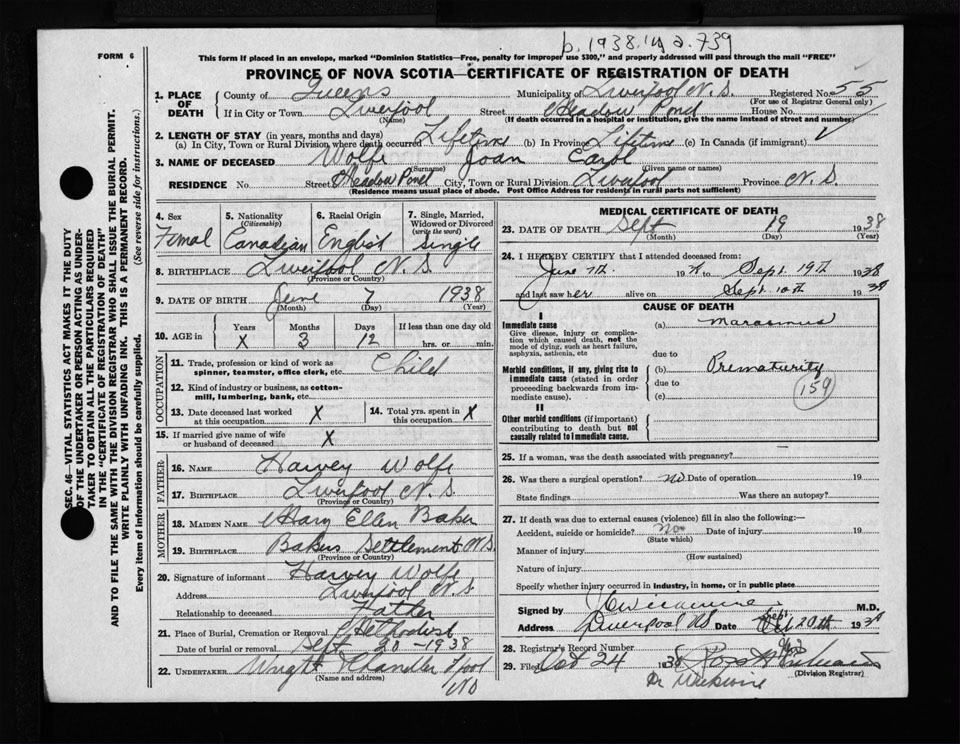 b. 1938. 739
FORM 6
This form if placed in an envelope, marked "Dominion Statistics—Free, penalty for improper use $300," and properly addressed will pass through the mail "FREE"
PROVINCE OF NOVA SCOTIA—CERTIFICATE OF REGISTRATION OF DEATH
1. PLACE OF DEATH
County of Queens Municipality of Liverpool N. S. Registered No. 55
(For use of Registrar General only)
If in City or Town Liverpool Street Meadow Pond House No.
(Name) (If death occurred in a hospital or institution, give the name instead of street and number)
2. LENGTH OF STAY (in years, months and days)
(a) In City, Town or Rural Division where death occurred Lifetime (b) In Province Lifetime (c) In Canada (if immigrant)
3. NAME OF DECEASED Wolfe Joan Carol
(Surname) (Given name or names)
RESIDENCE No. Street Meadow Pond City, Town or Rural Division Liverpool Province N. S.
(Residence means usual place of abode. Post Office Address for residents in rural parts not sufficient)
4. Sex Femal
5. Nationality (Citizenship) Canadian
6. Racial Origin English
7. Single, Married, Widowed or Divorced (write the word) Single
8. BIRTHPLACE Liverpool N. S.
(Province or Country)
9. DATE OF BIRTH June 7 1938
(Month) (Day) (Year)
10. AGE in Years Months Days If less than one day old
X 3 12 hrs. or min.
OCCUPATION
11. Trade, profession or kind of work as spinner, teamster, office clerk, etc. Child
12. Kind of industry or business, as cotton-mill, lumbering, bank, etc.
13. Date deceased last worked at this occupation X
14. Total yrs. spent in this occupation X
15. If married give name of wife or husband of deceased X
FATHER
16. NAME Harvey Wolfe
17. BIRTHPLACE Liverpool N. S.
(Province or Country)
MOTHER
18. MAIDEN NAME Mary Ellen Baker
19. BIRTHPLACE Bakers Settlement N.S.
(Province or Country)
20. Signature of informant Harvey Wolfe
Address Liverpool N. S.
Relationship to deceased Father
21. Place of Burial, Cremation or Removal Methodist
Date of burial or removal Sept 20 - 1938
22. UNDERTAKER Wright Chandler L'pool
NS
MEDICAL CERTIFICATE OF DEATH
23. DATE OF DEATH Sept 19 1938
(Month) (Day) (Year)
24. I HEREBY CERTIFY that I attended deceased from:
June 7th 19 to Sept. 19th 1938
and last saw her alive on Sept. 10th 1938
CAUSE OF DEATH
I
Immediate cause
Give disease, injury or complication which caused death, not the mode of dying, such as heart failure, asphyxia, asthenia, etc
(a) Marasmus
due to
Morbid conditions, if any, giving rise to immediate cause (stated in order proceeding backwards from immediate cause).
(b) Prematurity
due to
(c)
159
II
Other morbid conditions (if important) contributing to death but not causally related to immediate cause.
25. If a woman, was the death associated with pregnancy?
26. Was there a surgical operation? No Date of operation 19
State findings Was there an autopsy?
27. If death was due to external causes (violence) fill in also the following:—
Accident, suicide or homicide? No Date of injury 19
(State which)
Manner of injury
(How sustained)
Nature of injury
Specify whether injury occurred in industry, in home, or in public place
Signed by M.D.
Address Liverpool NS Date Sept. 20th 1938
28. Registrar's Record Number
29. Filed Oct 24 1938
(Division Registrar)
Dr Wickwire
SEC. 46—VITAL STATISTICS ACT MAKES IT THE DUTY
OF THE UNDERTAKER OR PERSON ACTING AS UNDER-
TAKER TO OBTAIN ALL THE PARTICULARS REQUIRED
IN THE "CERTIFICATE OF REGISTRATION OF DEATH"
AND TO FILE THE SAME WITH THE DIVISION REGISTRAR WHO SHALL ISSUE THE BURIAL PERMIT.
WRITE PLAINLY WITH UNFADING INK. THIS IS A PERMANENT RECORD.
Every item of information should be carefully supplied. (See reverse side for instructions.)